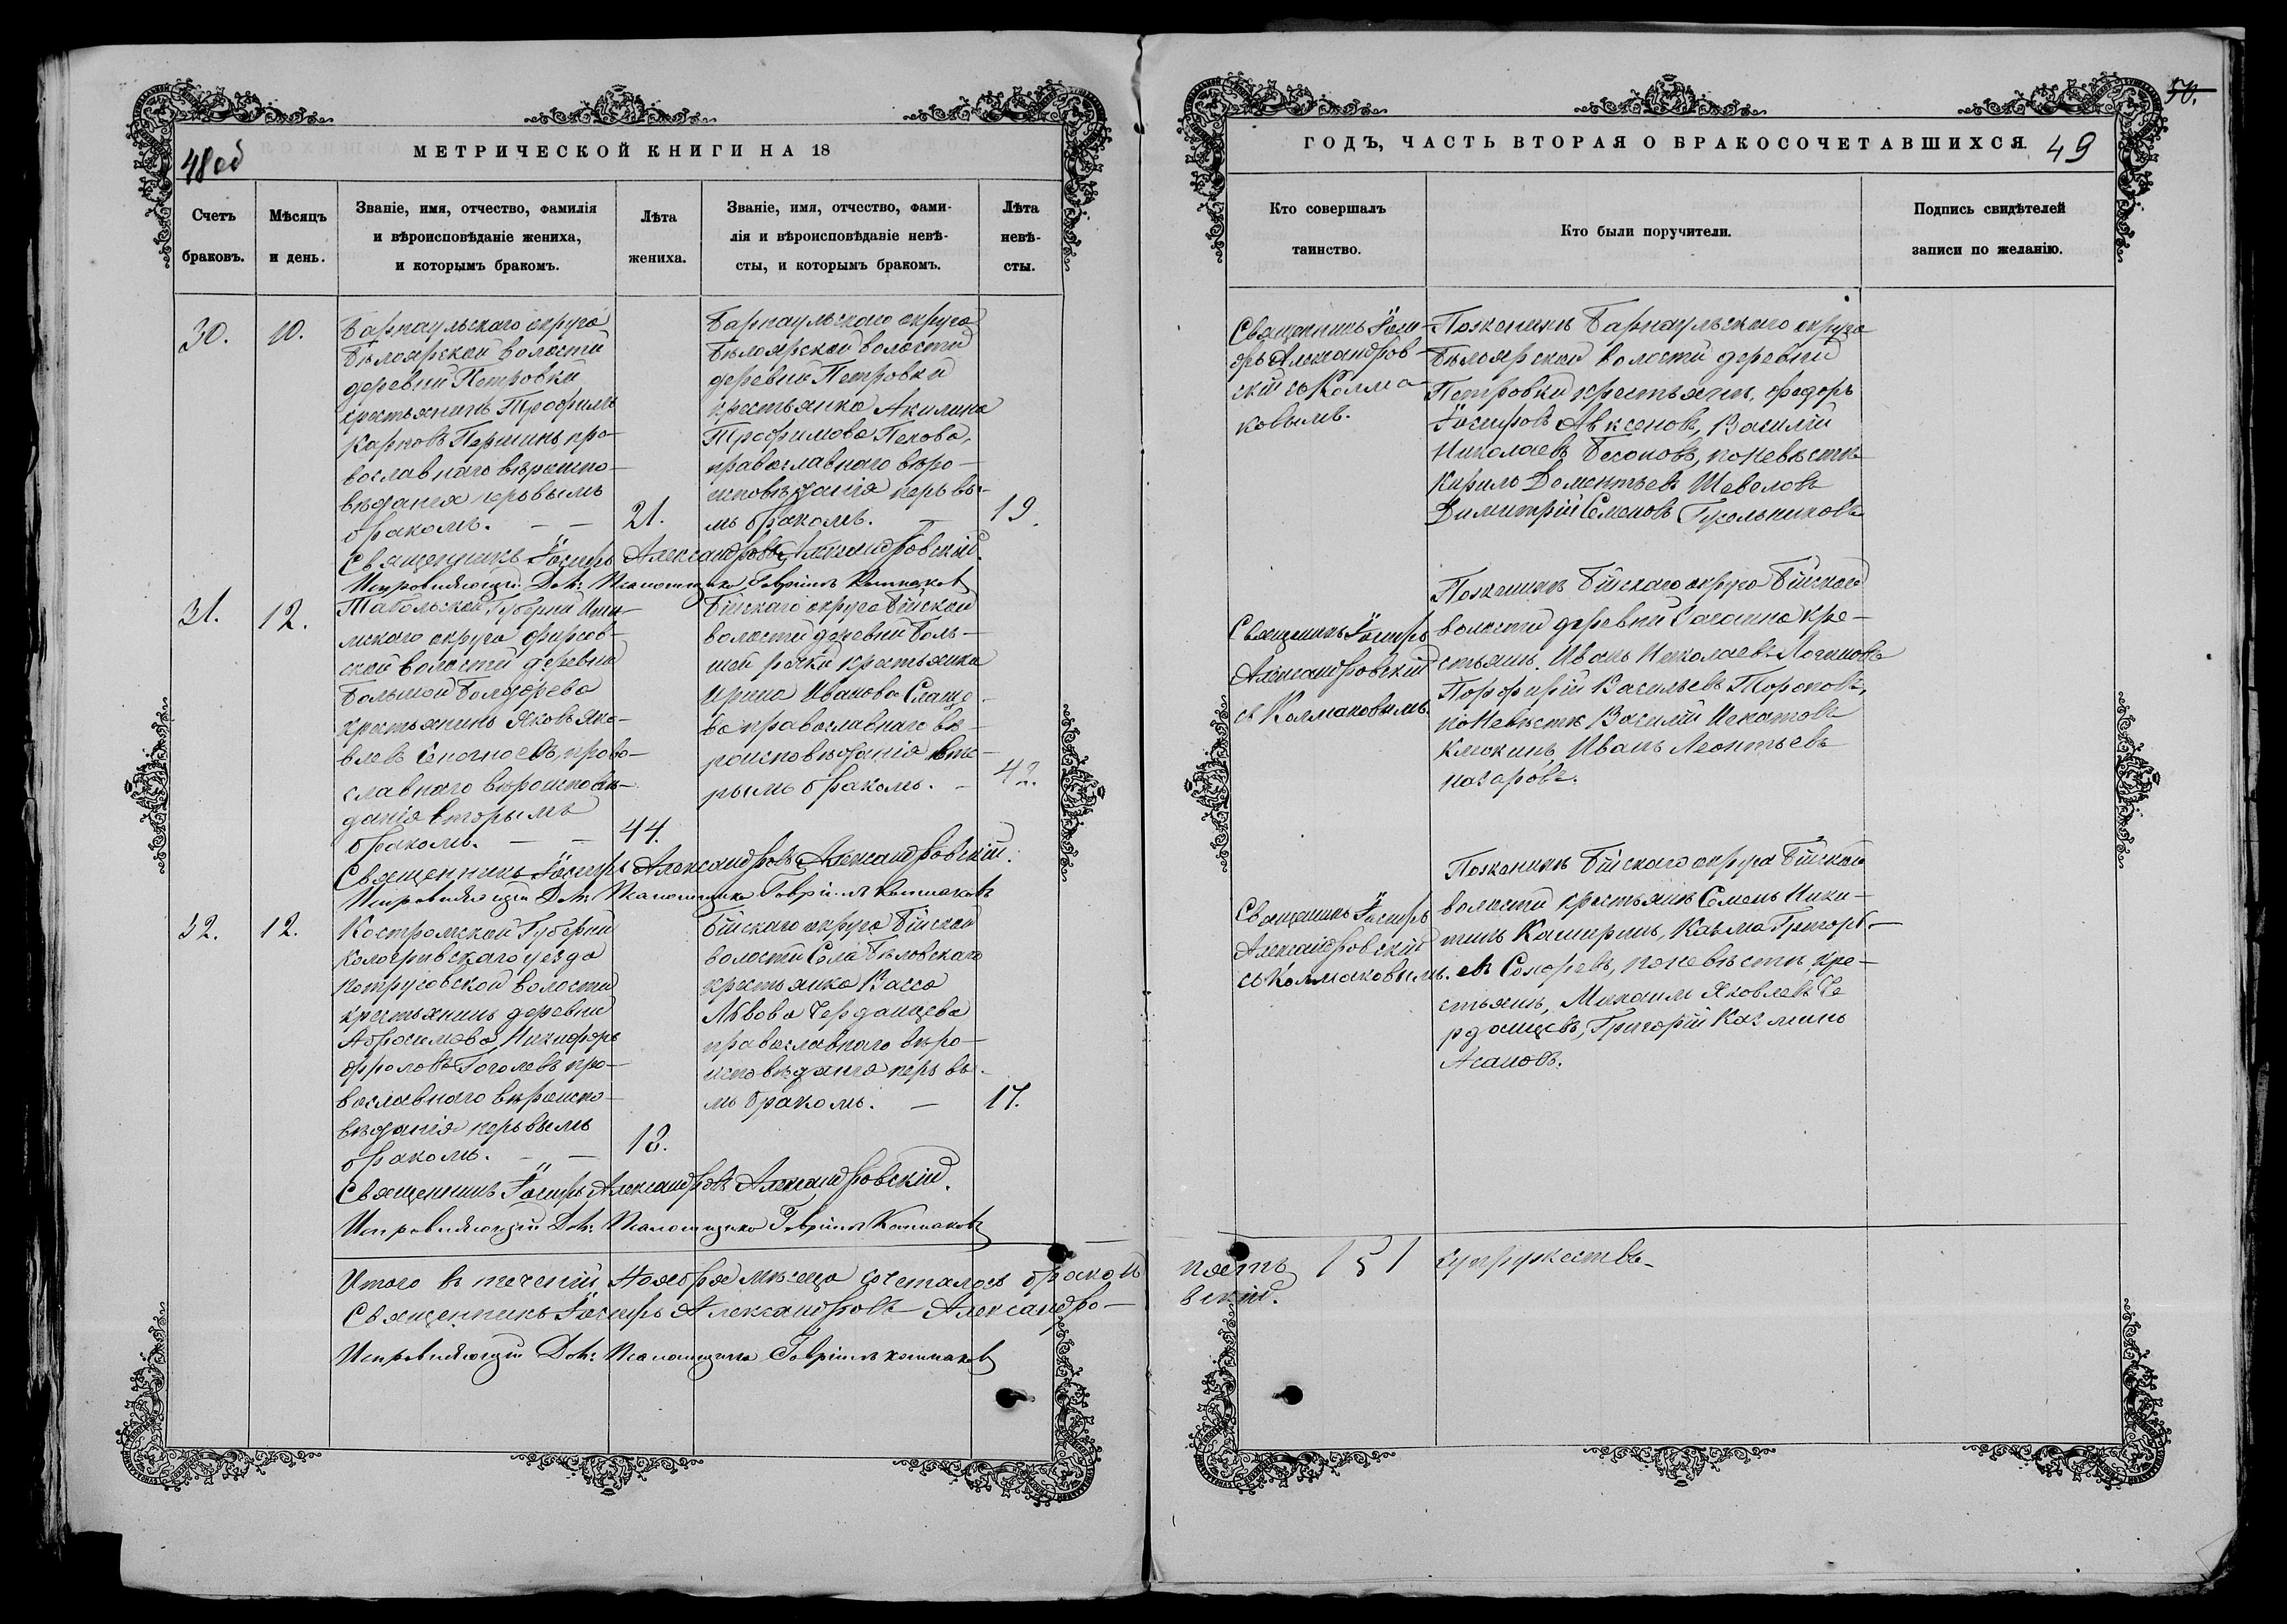 48 об
МЕТРИЧЕСКОЙ КНИГИ НА 18
Счетъ браковъ.
Мѣсяцъ и день.
Званіе, имя, отчество, фамилія
и вѣроисповѣданіе жениха,
и которымъ бракомъ.
Лѣта
жениха.
Званіе, имя, отчество, фами-
лія и вѣроисповѣданіе невѣ-
сты, и которымъ бракомъ.
Лѣта
невѣ-
сты.
30.
10.
Барнаульскаго округа
Бѣлоярской волости
деревни Петровки
крестьянинъ Трофимъ
Карповъ Першинъ, пра-
вославнаго вѣроиспо-
вѣданія первымъ
бракомъ. — —
21.
Барнаульскаго округа
Бѣлоярской волости
деревни Петровки
крестьянка Акилина
Трофимова Пекова,
православнаго вѣро-
исповѣданія первы-
мъ бракомъ. —
19.
Священникъ Іосифъ Александровъ Александровскій.
Исправляющій Дол: Псаломщика Гавріилъ Колмаковъ
31.
12.
Табольской Губерніи Иши-
мскаго округа Фирсов-
ской волости деревни
Большой
крестьянинъ Яковъ Яко-
влевъ право-
славнаго вѣроисповѣ-
данія вторымъ
бракомъ. — —
44.
Бійскаго округа Бійской
волости деревни Боль-
шой рѣчки крестьянка
Ирина Иванова Слаще-
ва православнаго вѣ-
роисповѣданія вто-
рымъ бракомъ. —
42.
Священникъ Іосифъ Александровъ Александровскій.
Исправляющій Дол: Псаломщика Гавріилъ Колмаковъ
32.
12.
Костромской Губерніи
Кологривскаго уезда
волости
крестьянинъ деревни
Абросимова Никифоръ
Фроловъ Гоголевъ пра-
вославнаго вѣроиспо-
вѣданія первымъ
бракомъ. — —
18.
Бійскаго округа Бійской
волости Села Бѣловскаго
крестьянка Васса
Львова Черданцева
православнаго вѣро-
исповѣданія первы-
мъ бракомъ. —
17.
Священникъ Іосифъ Александровъ Александровскій.
Исправляющій Дол: Псаломщика Гавріилъ Колмаковъ
Итого въ теченіи Ноября мѣсяца сочеталось бракомъ
Священникъ Іосифъ Александровъ Александро-
Исправляющій Дол: Псаломщика Гавріилъ Колмаковъ
50.
ГОДЪ, ЧАСТЬ ВТОРАЯ О БРАКОСОЧЕТАВШИХСЯ.
49
Кто совершалъ
таинство.
Кто были поручители.
Подпись свидѣтелей
записи по желанію.
Священникъ Іоси-
фъ Александров-
скій съ Колма-
ковымъ.
По женихѣ Барнаульскаго округа
Бѣлоярской волости деревни
Петровки крестьяне, Федоръ
Іосифовъ Авксеновъ, Василій
Николаевъ Бесоновъ, по невѣстѣ
Кирило Дементьевъ Шевелевъ
Димитрій Семеновъ
Священникъ Іосифъ
Александровскій
съ Колмаковымъ.
По женихѣ Бійскаго округа Бійской
волости деревни кре-
стьяне, Иванъ Николаевъ Логиновъ
Порфирій Васильевъ Тороповъ,
по невѣстѣ Василій
Клюкинъ, Иванъ Леонтьевъ
Назаровъ.
Священникъ Іосифъ
Александровскій
съ Колмаковымъ.
По женихѣ Бійскаго округа Бійской
волости крестьяне Семенъ Ники-
тинъ Каширинъ, Казьма Григорь-
евъ по невѣстѣ, кре-
стьяне, Михаилъ Яковлевъ Че
рданцевъ, Григорій Казминъ
Асановъ.
пять /5/ супружествъ
вскій.